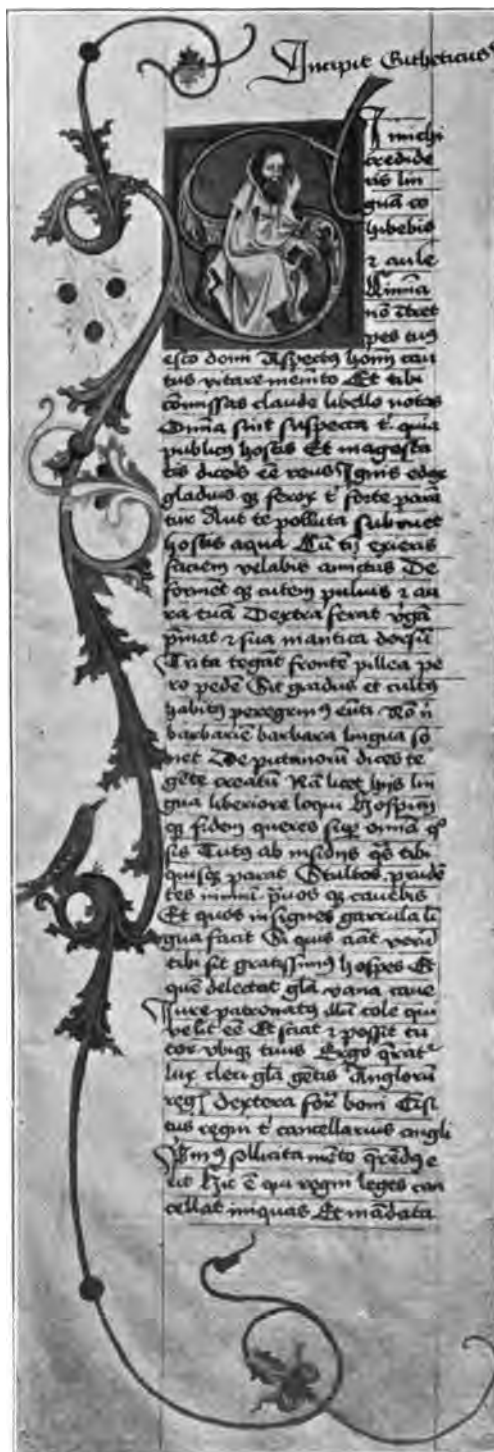 Incipit Eutheticus
Si michi
credide
ris lin
guā co
hibebis
⁊ aule
Limīa
nō ītret
pes tuꝰ
esto domi Aspectꝰ homīū cau
tus vitare memēto Et tibi
cōmissas claude libelle notas
Omīa sint suspecta t' quia
publicꝰ hostis Et magesta
tis diceris eē reus Ignis edax
gladius qꝫ ferox t' forte parā
tur Aut te polluta subruet
hostis aqua Cū tn̄ exieris
faciem velabis amictus De
formet qꝫ cutem puluis ⁊ au
ra tuā Dextra ferat v'gā
p̄mat ⁊ sua mantica dorsū
Trita tegāt frontē pillea pe
ro pedē Sit gradus et cultꝰ
habitꝰ peregrinꝰ eūti Nō n̄
barbariē barbara lingua so
net De pictanorū dices te
gēte creatū Nā licet hijs lin
gua liberiore loqui Hospitꝫ
qꝫ fidem queres siqꝫ omīa q͛
sis Tutꝰ ab insidijs qͣs tibi
quisqꝫ parat Stultos prudē
tes nimiū p̄uos qꝫ cauebis
Et quos insignes garrula lī
gua facit Si quis amat verū
tibi sit gratissimꝰ hospes Et
quē delectat glīa vana caue
Iure patronatꝰ illū cole qui
velit eē Et sciat ⁊ possit tu
tor vbiqꝫ tuus Ergo q̄rat'
lux cleri glīa gētis Anglorū
regꝫ dextera for̄ boni Q̄si
tus regni t' cancellarius angli
Pimꝰ sollicita mēte q̄rēdꝰ e
rit Hic ē qui regni leges can
cellat iniquas Et mādata